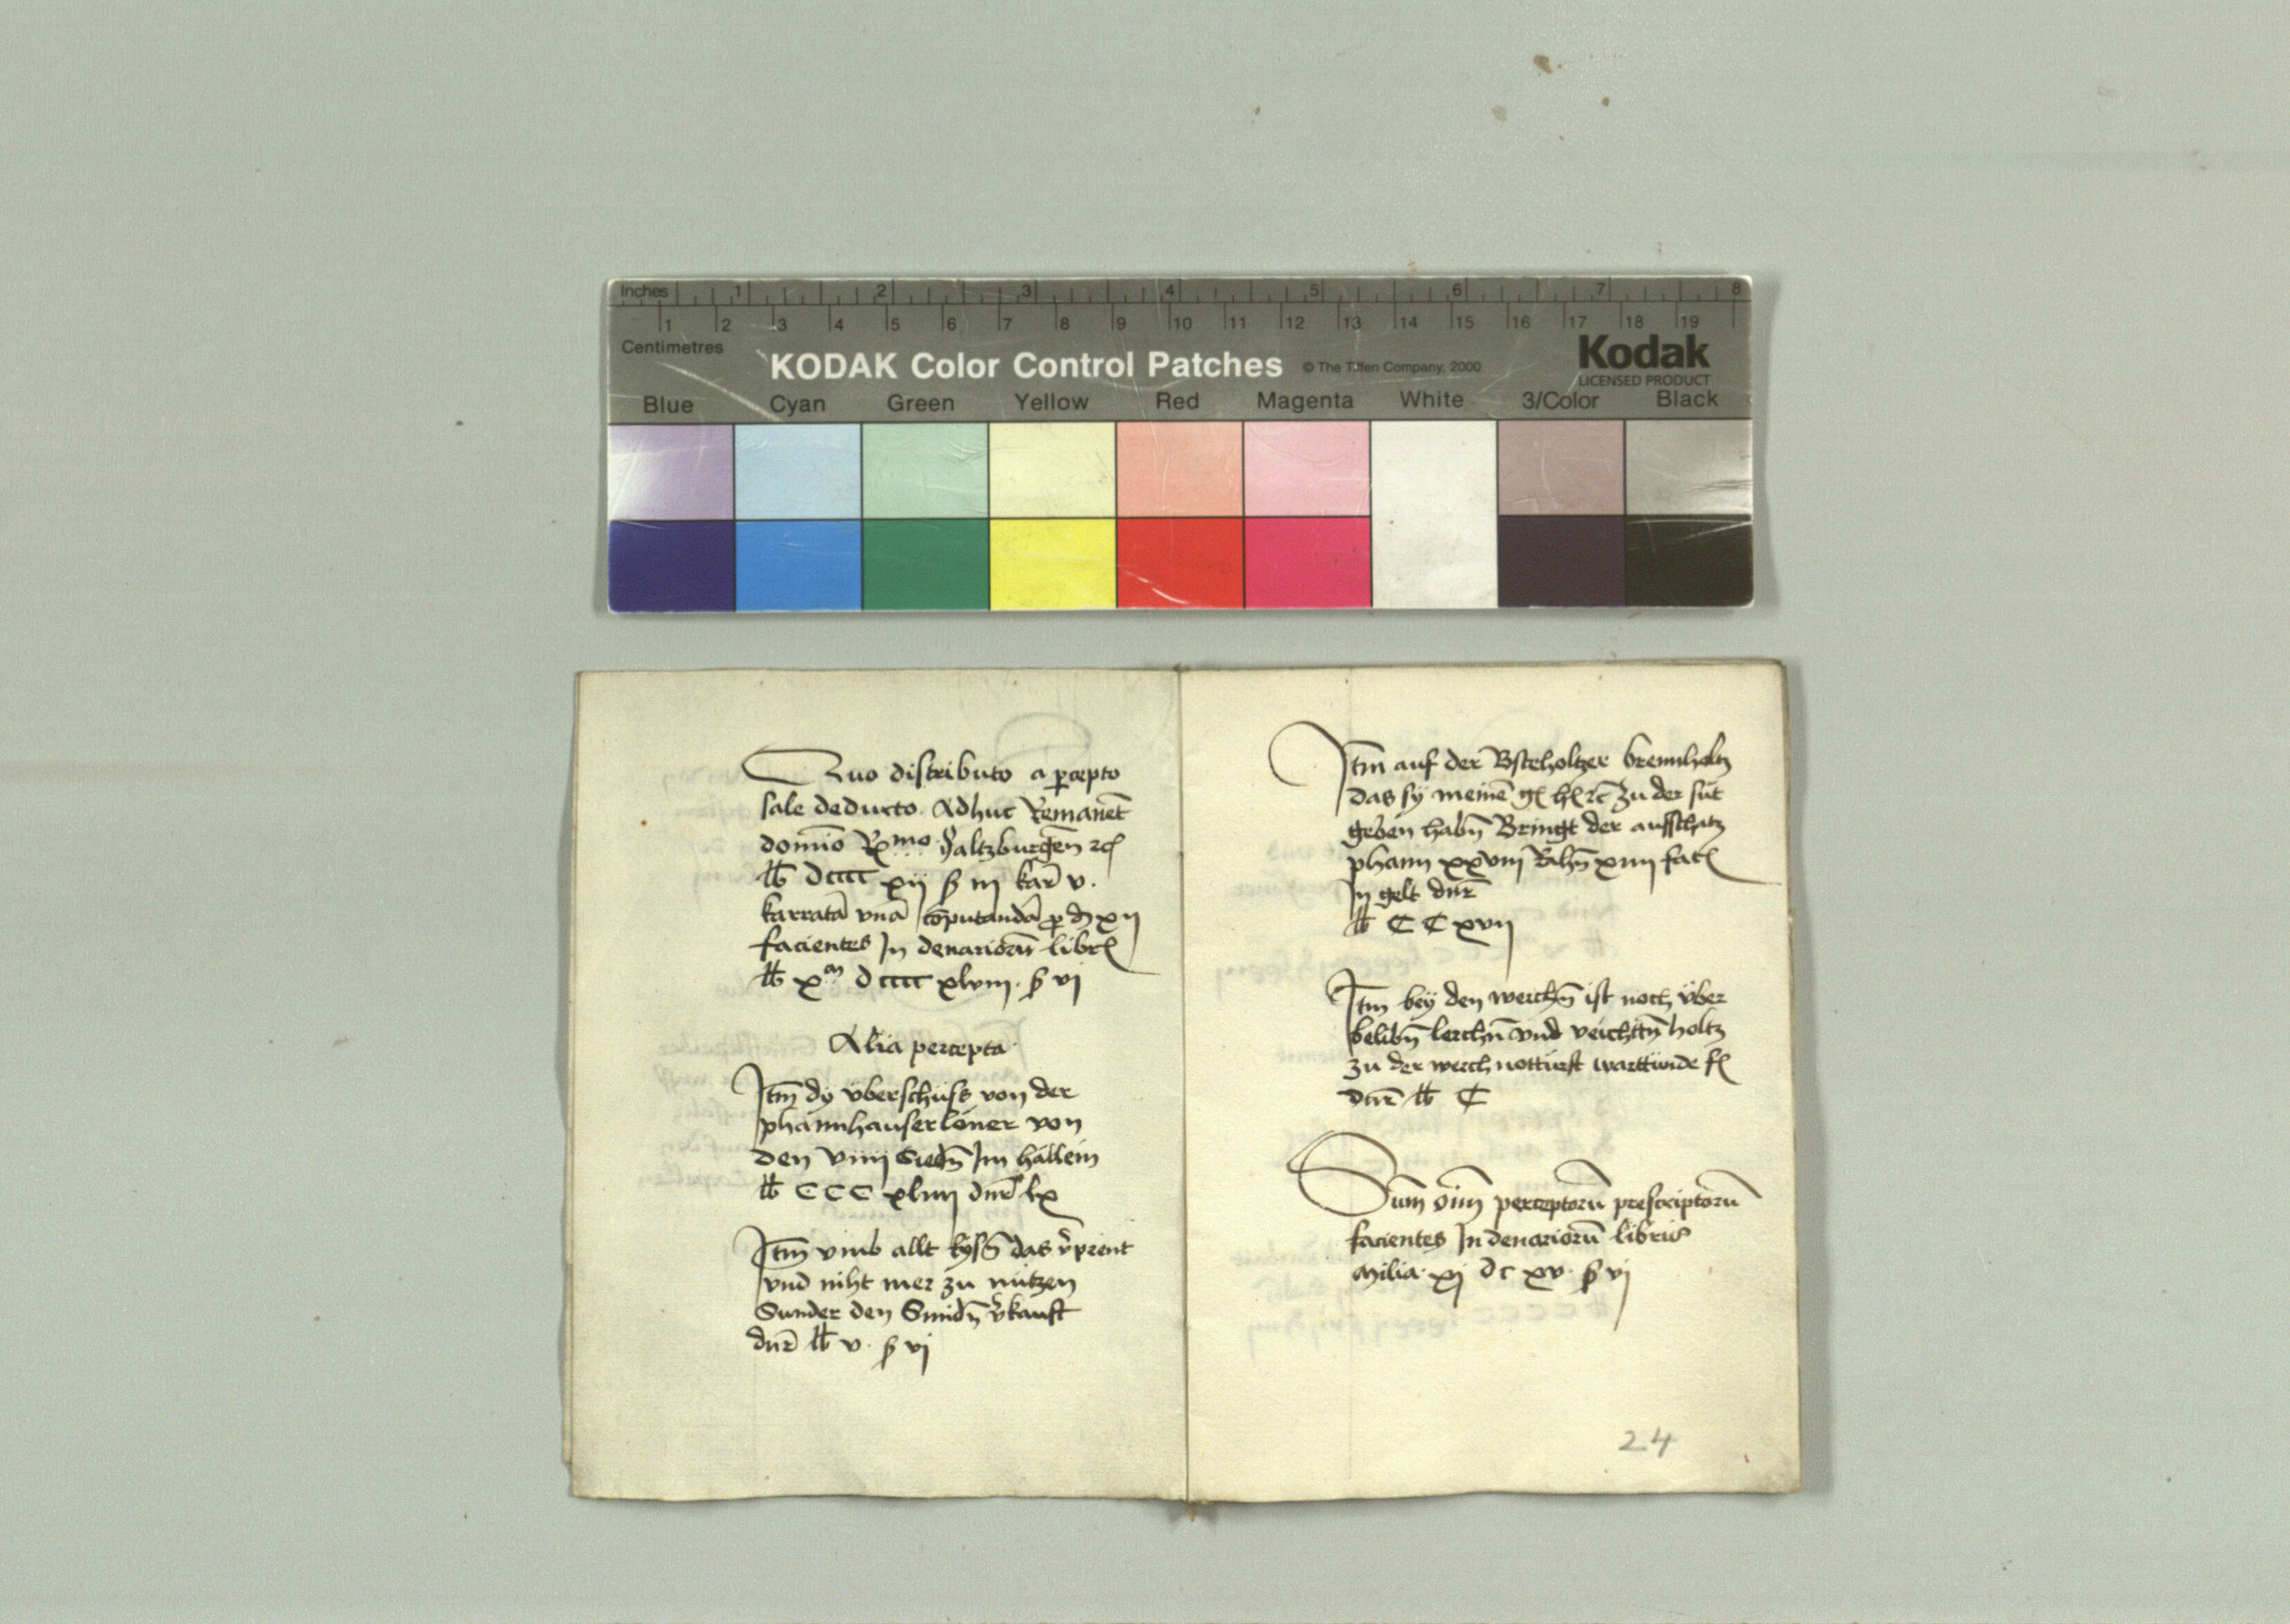 Inches 1 2 3 4 5 6 7 8
1 2 3 4 5 6 7 8 9 10 11 12 13 14 15 16 17 18 19
Centimetres
KODAK Color Control Patches © The Tiffen Company, 2000 Kodak
LICENSED PRODUCT
Blue Cyan Green Yellow Red Magenta White 3/Color Black
Quo distributo a ꝑcepto
sale deducto. Adhuc Remanet̄
domīo Rmo Saltzburgen̄ ꝛc
℔ Dcccc xij ß iij kar̄ v.
karratā vnā cōputandā ꝓ ₰ xij
facientes In denariorū libr
℔ xm dcccc xlviij. ß vj
Alia percepta
Itm̄ dy überschüss von der
phannhauserloner von
den viiij Siedn̄ Im hällein
℔ CCC xliiij dnr̄ lx
Itm̄ vmb allt eysn̄ das v̄prent
vnd niht mer zu nützen
Sunder den Smidn̄ v̄kauft
dnr̄ ℔ v. ß vj
Itm̄ auf der holtzer brennholtz
das sy meinē g h ꝛc zu der sut
geben habn̄ Bringt der aufschatz
phann xxviij Rahn̄ xiiij fac
In gelt dnr̄
℔ CC xvij
Itm̄ bey den werchn̄ ist noch über
belibn̄ lerchn̄ vnd veichttn̄ holtz
zu der werch notturft warttunde f
dnr̄ ℔ C
Sum̄ oīm perceptorū prescriptorū
facientes In denariorū libris
Milia xj dc xv. ß vj
24